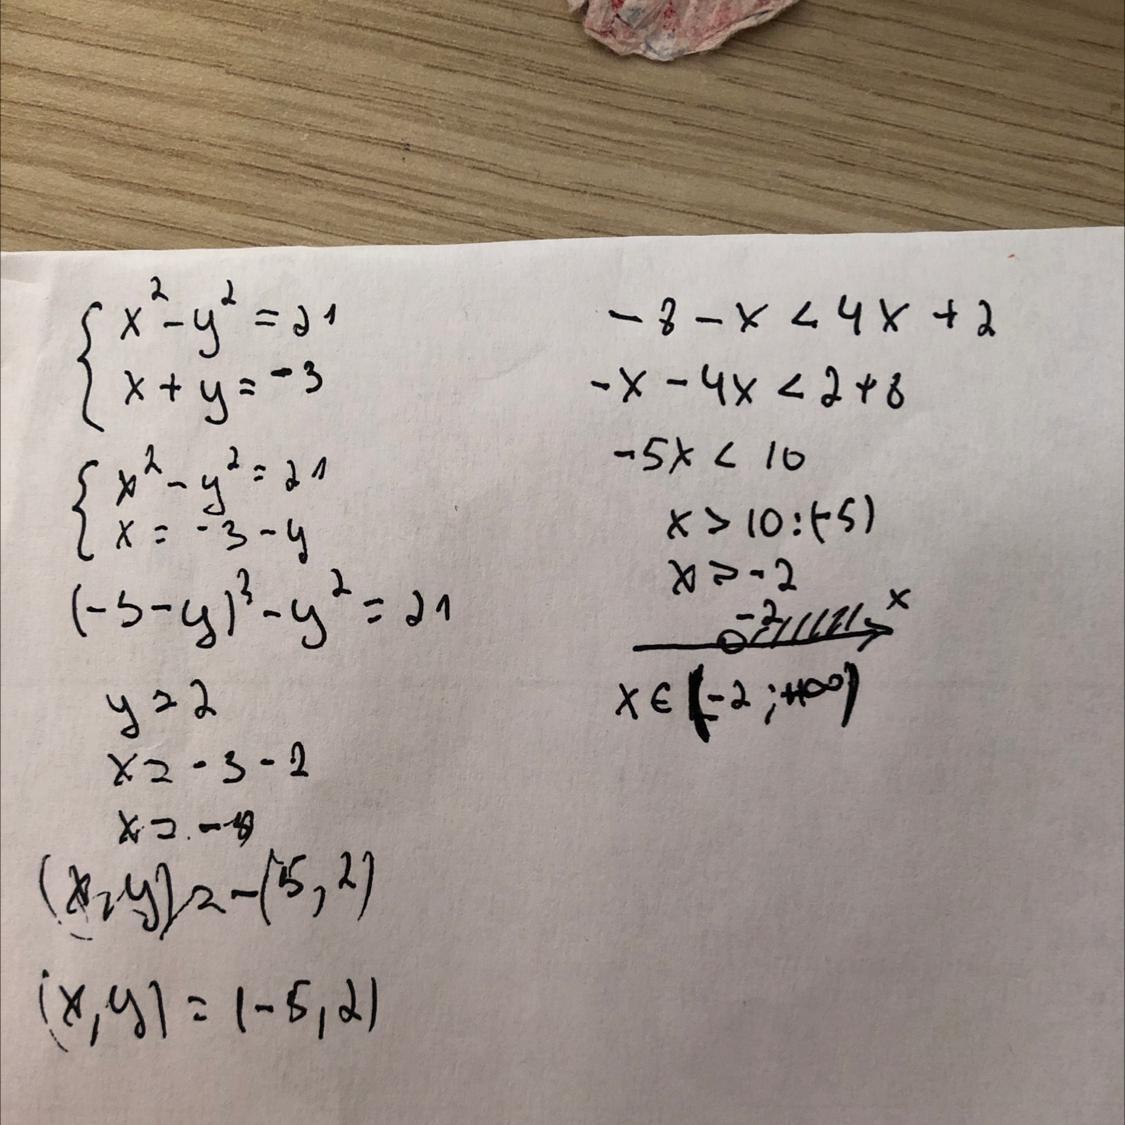 { x² - y² = 21
x + y = -3
{ x² - y² = 21
x = -3 - y
(-3 - y)² - y² = 21
y = 2
x = -3 - 2
x = -
(x, y) = -(5, 2)
(x, y) = (-5, 2)
-8 - x < 4x + 2
-x - 4x < 2 + 8
-5x < 10
x > 10 : (-5)
x > -2
-2 x
x ∈ (-2 ; +∞)